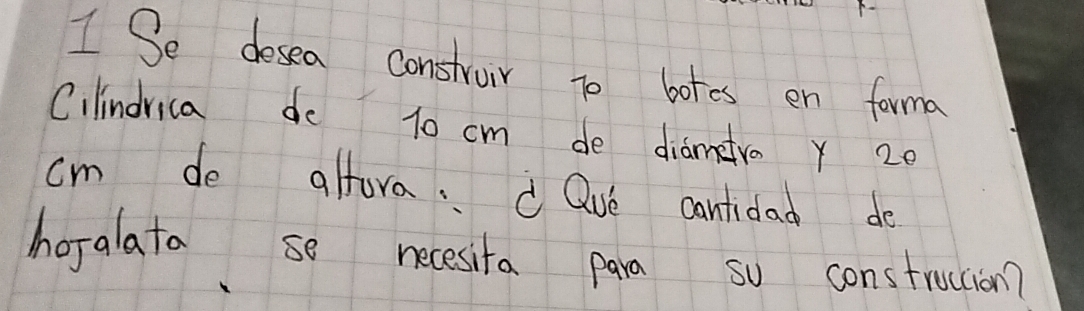 1 Se desea construir 10 botes en forma
Cilíndrica de 10 cm de diámetro y 20
cm de altura. ¿Qué cantidad de
hojalata se necesita para su construcción?